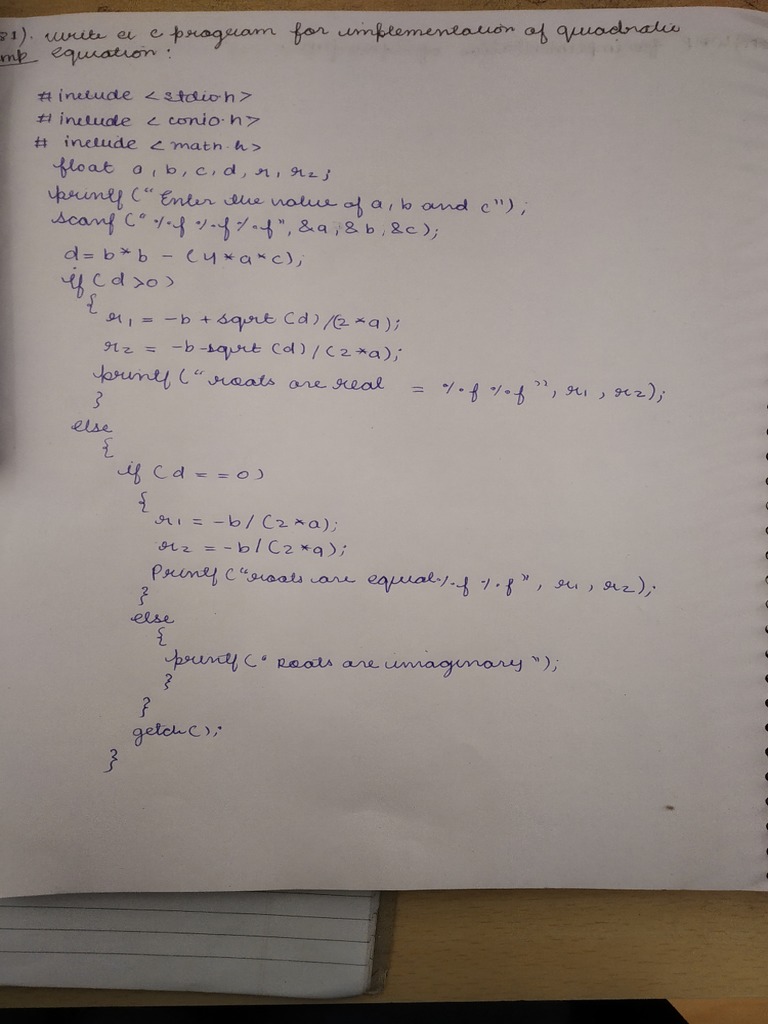 81). write a c program for implementation of quadratic
imp equation :
# include < stdio.h>
# include < conio.h>
# include < math.h>
float a, b, c, d, r1, r2;
printf ("Enter the value of a, b and c");
scanf ("%f %f %f", &a, &b, &c);
d = b*b - (4*a*c);
if (d >0)
{
r1 = -b + sqrt (d) / (2*a);
r2 = -b-sqrt (d) / (2*a);
printf ("roots are real = %f %f", r1, r2);
}
else
{
if (d = = 0)
{
r1 = -b / (2*a);
r2 = -b / (2*a);
Printf ("roots are equal %f %f", r1, r2);
}
else
{
printf (" Roots are imaginary ");
}
}
getch();
}